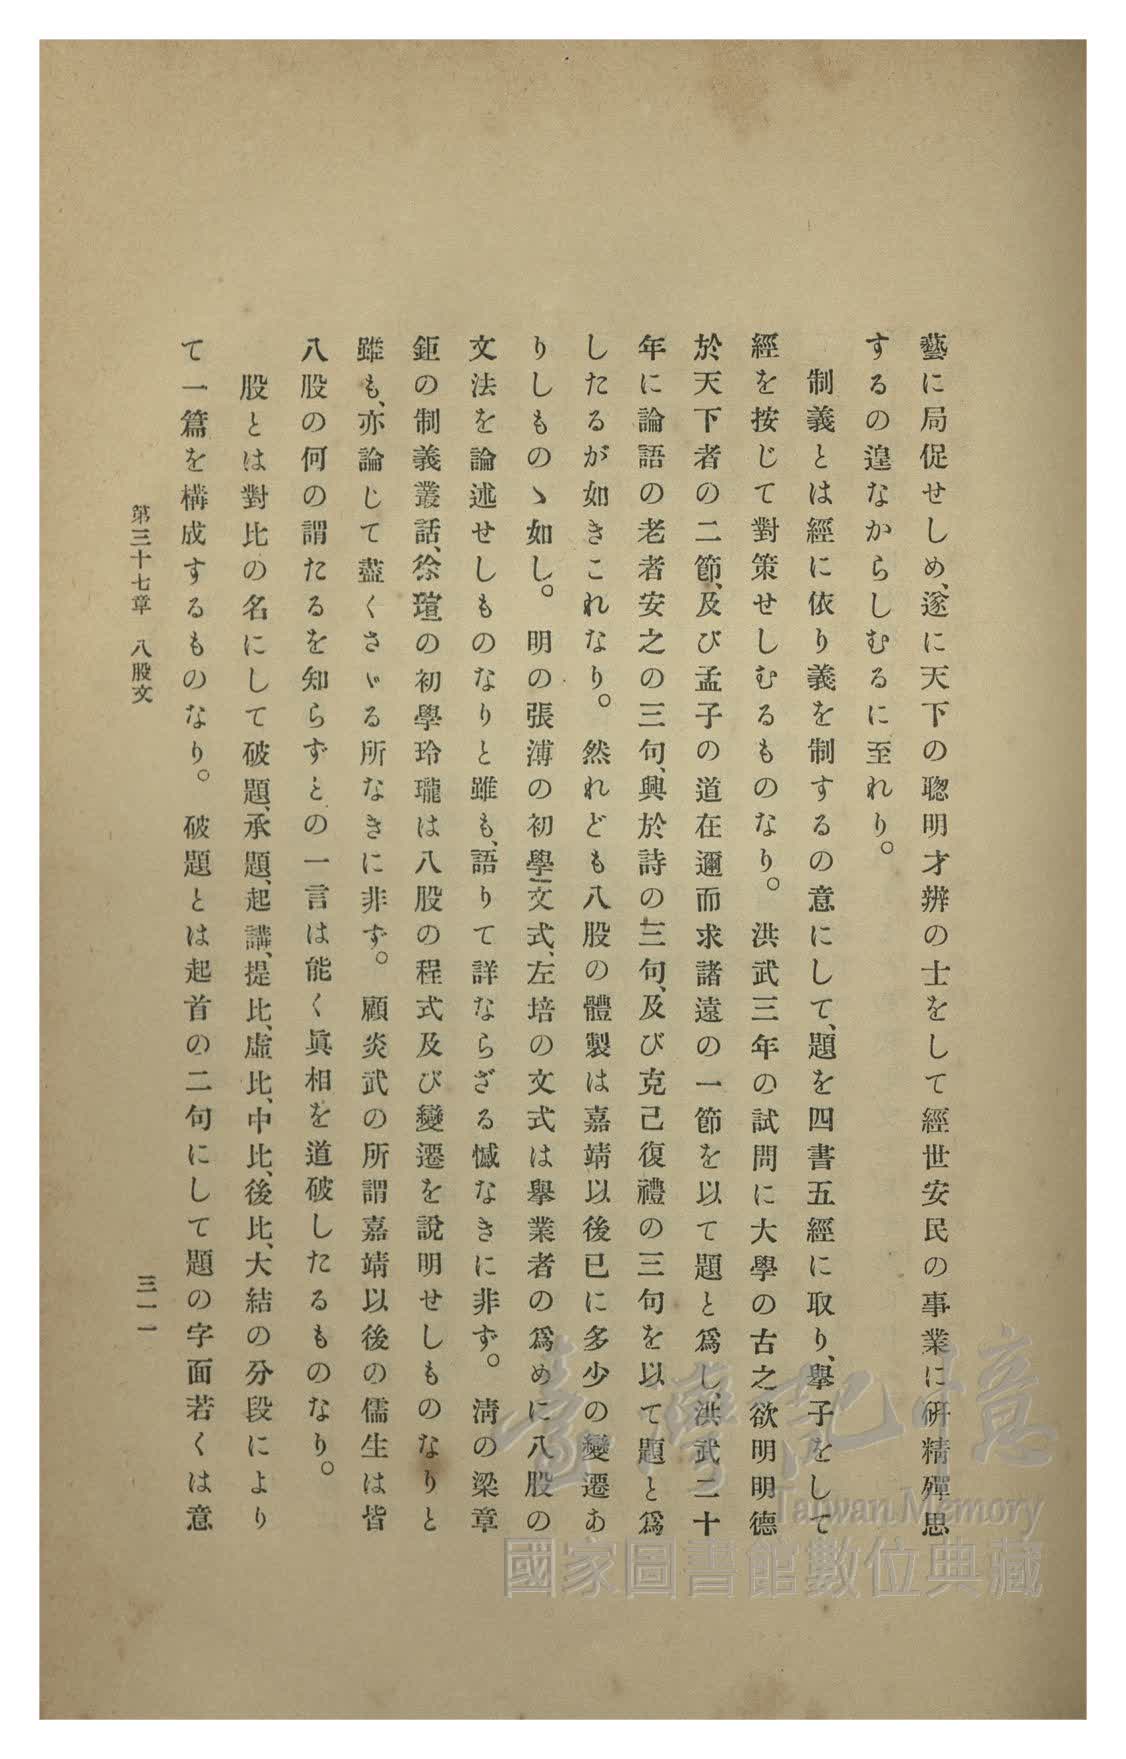 藝に局促せしめ、遂に天下の聰明才辨の士をして經世安民の事業に硏精殫思
するの遑なからしむるに至れり。
制義とは經に依り義を制するの意にして、題を四書五經に取り、擧子をして
經を按じて對策せしむるものなり。洪武三年の試問に大學の古之欲明明德
於天下者の二節、及び孟子の道在邇而求諸遠の一節を以て題と爲し、洪武二十
年に論語の老者安之の三句、興於詩の三句、及び克己復禮の三句を以て題と爲
したるが如きこれなり。然れども八股の體製は嘉靖以後已に多少の變遷あ
りしものゝ如し。明の張溥の初學文式、左培の文式は擧業者の爲めに八股の
文法を論述せしものなりと雖も、語りて詳ならざる憾なきに非ず。淸の梁章
鉅の制義叢話、徐瑄の初學玲瓏は八股の程式及び變遷を說明せしものなりと
雖も、亦論じて盡くさゞる所なきに非ず。顧炎武の所謂嘉靖以後の儒生は皆
八股の何の謂たるを知らずとの一言は能く眞相を道破したるものなり。
股とは對比の名にして破題、承題、起講、提比、虛比、中比、後比、大結の分段により
て一篇を構成するものなり。破題とは起首の二句にして題の字面若くは意
第三十七章 八股文
三一一
臺灣記憶
Taiwan Memory
國家圖書館數位典藏